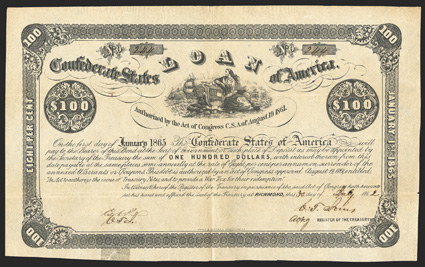 100
100
No.
No.
Confederate States
LOAN
of America.
Authorized by the Act of Congress C.S.A. of August 19 1861.
$100
$100
EIGHT PER CENT
JANUARY 1865
On the first day of January 1865 The Confederate States of America will
pay to the Bearer of this Bond at the Seat of Government
by the Secretary of the Treasury the sum of ONE HUNDRED DOLLARS, with interest thereon from this
date payable at the same place
the annexed Warrants or Coupons. This debt is authorized by an act of Congress approved August 19, 1861 entitled,
"An Act to authorize the issue of Treasury Notes, and to provide a War Tax for their redemption."
In Witness Whereof the Register of the Treasury in pursuance of the said Act of Congress hath hereunto
set his hand and affixed the Seal of the Treasury at RICHMOND, this day of
REGISTER OF THE TREASURY
100
100